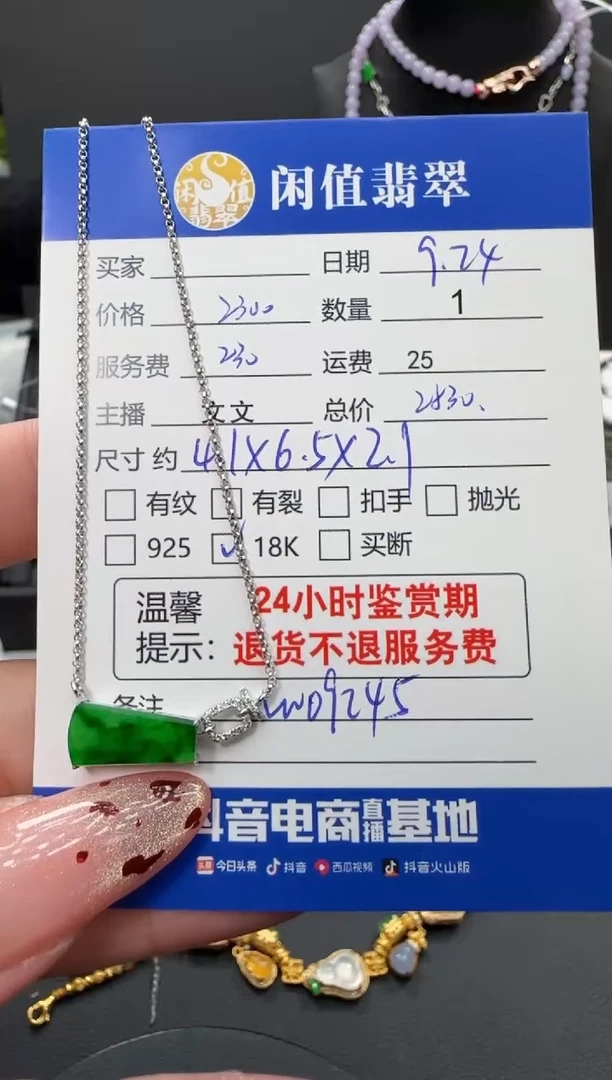 闲值翡翠
闲值翡翠
买家 日期 9.24
价格 2300 数量 1
服务费 230 运费 25
主播 文文 总价
尺寸 约 41X6.5X2.1
有纹 有裂 扣手 抛光
925 ✓ 18K 买断
温馨提示：
24小时鉴赏期
退货不退服务费
备注
抖音电商直播基地
头条 今日头条 抖音 西瓜视频 抖音火山版